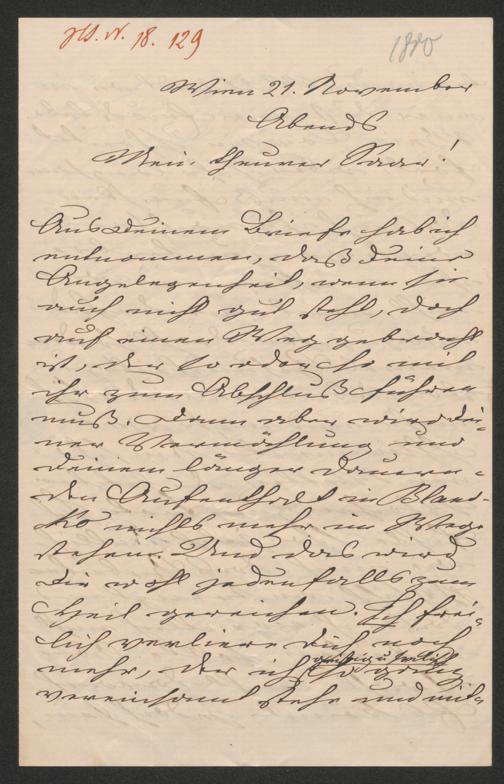 H.I.N. 18.129
1880
Wien 21. November
Abends
Mein theurer Saar!
Aus Deinem Briefe hab ich
entnommen, daß Deine
Angelegenheit, wenn sie
auch nicht gut steht, doch
auf einen Weg gebracht
ist, der so oder so mit
ihr zum Abschluß führen
muß. Dann aber wird Dei-
ner Vermählung und
Deinem länger dauern-
den Aufenthalt in Blans-
ko nichts mehr im Wege
stehen. Und das wird
Dir wohl jedenfalls zum
Heil gereichen. Ich frei-
lich verliere Dich noch
mehr, der ich so ganz
geistig u.
vereinsamt stehe und mit